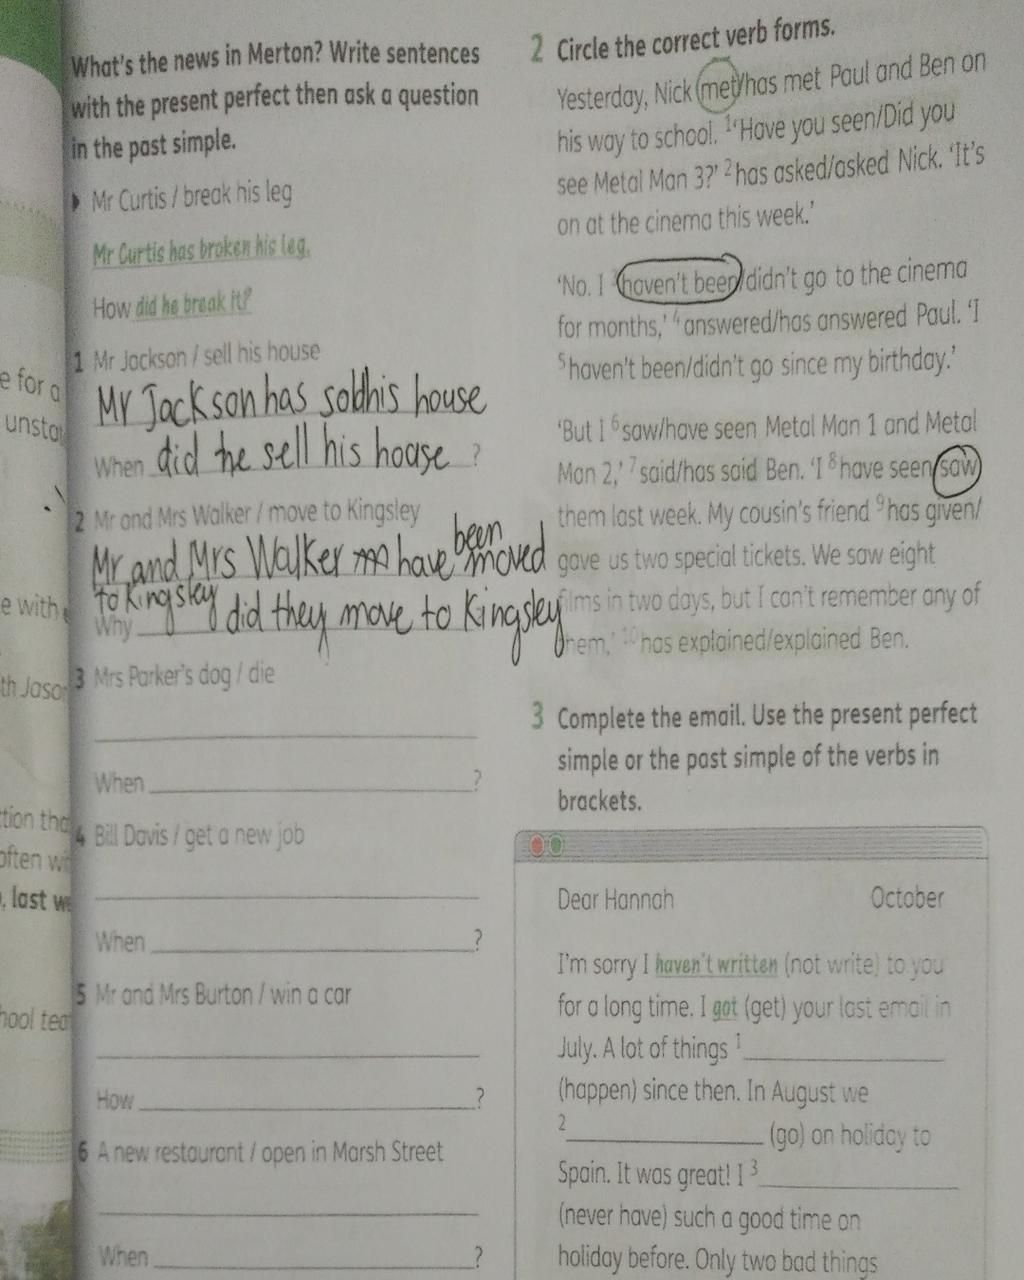 What's the news in Merton? Write sentences
with the present perfect then ask a question
in the past simple.
Mr Curtis / break his leg
Mr Curtis has broken his leg.
How did he break it?
1 Mr Jackson / sell his house
Mr Jackson has sold his house
When did he sell his house ?
2 Mr and Mrs Walker / move to Kingsley
Mr and Mrs Walker have been moved
to Kingsley
Why did they move to Kingsley
3 Mrs Parker's dog / die
When ?
4 Bill Davis / get a new job
When ?
5 Mr and Mrs Burton / win a car
How ?
6 A new restaurant / open in Marsh Street
When ?
2 Circle the correct verb forms.
Yesterday, Nick met/has met Paul and Ben on
his way to school. 1'Have you seen/Did you
see Metal Man 3?' 2has asked/asked Nick. 'It's
on at the cinema this week.'
'No. I 3haven't been/didn't go to the cinema
for months,' 4answered/has answered Paul. 'I
5haven't been/didn't go since my birthday.'
'But I 6saw/have seen Metal Man 1 and Metal
Man 2,' 7said/has said Ben. 'I 8have seen/saw
them last week. My cousin's friend 9has given/
gave us two special tickets. We saw eight
films in two days, but I can't remember any of
them,' 10has explained/explained Ben.
3 Complete the email. Use the present perfect
simple or the past simple of the verbs in
brackets.
Dear Hannah October
I'm sorry I haven't written (not write) to you
for a long time. I got (get) your last email in
July. A lot of things 1
(happen) since then. In August we
2 (go) on holiday to
Spain. It was great! I 3
(never have) such a good time on
holiday before. Only two bad things
e for a
unsta
e with
th Jaso
tion tha
often wi
last w
hool tea